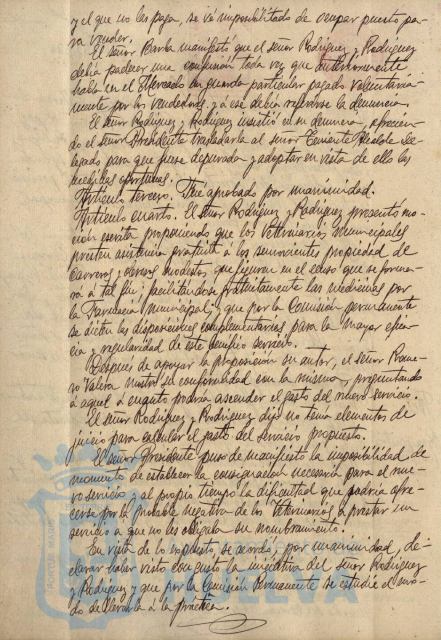 y el que no las paga, se vé imposibilitado de ocupar puesto pa-
ra vender.
El señor Barba manifestó que el señor Rodriguez y Rodriguez
debia padecer una confusión toda vez que anteriormente
habia en el Mercado un guarda particular pagado voluntaria-
mente por los vendedores y a ese debia referirse la denuncia.
El señor Rodriguez y Rodriguez insistió en su denuncia, ofrecien-
do el señor Presidente trasladarla al señor Teniente Alcalde De-
legado para que fuese depurada y adoptar en vista de ello las
medidas oportunas.
Artículo tercero. Fué aprobado por unanimidad.
Artículo cuarto. El señor Rodriguez y Rodriguez presentó mo-
ción escrita proponiendo que los Veterinarios municipales
presten asistencia gratuita á los semovientes propiedad de
carreros y obreros modestos que figuren en el censo que se forma-
rá á tal fin, facilitándose gratuitamente las medicinas por
la Farmacia municipal, y que por la Comisión permanente
se dicten las disposiciones complementarias para la mayor efica-
cia y regularidad de este benéfico servicio.
Despues de apoyar la proposición su autor, el señor Rome-
ro Valera mostró su conformidad con la misma, preguntando
á aquel á cuanto podria ascender el gasto del nuevo servicio.
El señor Rodriguez y Rodriguez dijo no tenia elementos de
juicio para calcular el gasto del servicio propuesto.
El señor Presidente puso de manifiesto la imposibilidad de
momento de establecer la consignación necesaria para el nue-
vo servicio y al propio tiempo la dificultad que podria ofre-
cerse por la probable negativa de los Veterinarios á prestar un
servicio a que no les obligaba su nombramiento.
En vista de lo expuesto se acordó, por unanimidad, de-
clarar haber visto con gusto la iniciativa del señor Rodriguez
y Rodriguez y que por la Comisión Permanente se estudie el mo-
do de llevarla á la práctica.